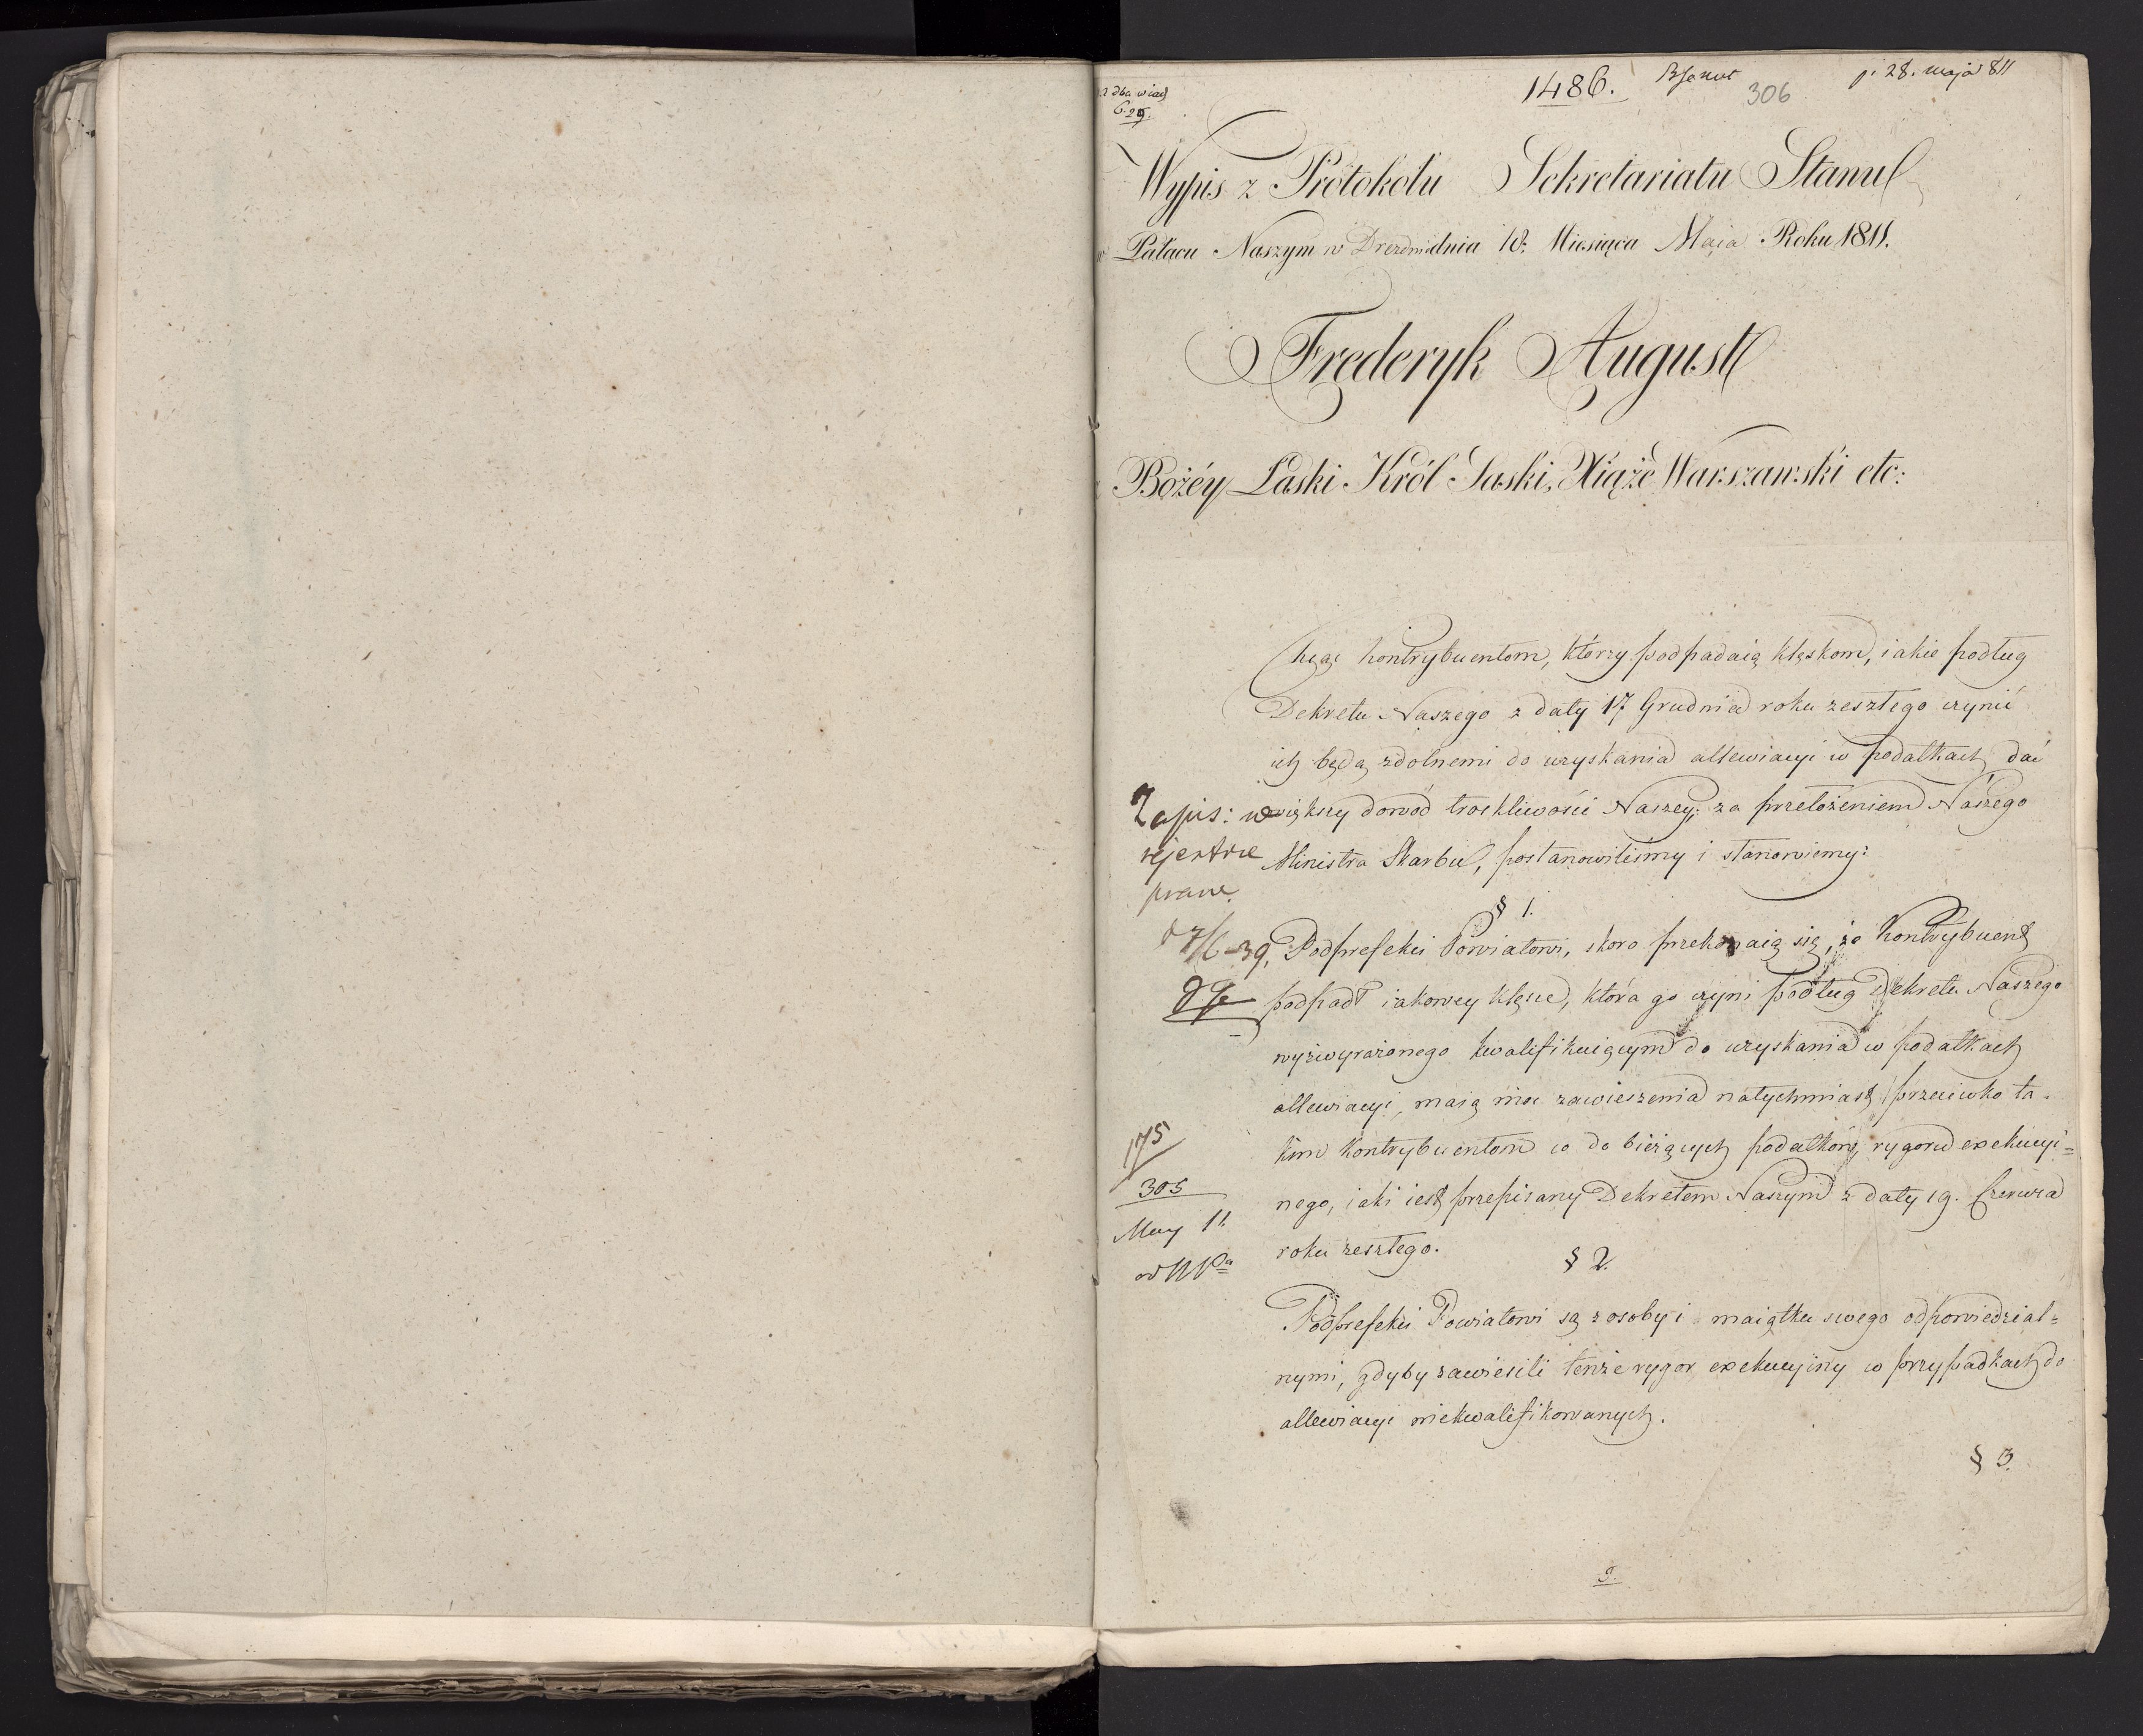 1486. 306 p. 28. maja 811
6. 29.
Wypis z Protokołu Sekretariatu Stanu
w Pałacu Naszym w Dreznie dnia 18. Miesiąca Maja Roku 1811.
Frederyk August
Bożéy Łaski Król Saski, Xiąże Warszawski etc:
Chcąc kontrybuentom, którzy podpadaią klęskom, iakie podług
Dekretu Naszego z daty 17 Grudnia roku zeszłego czynić
ich będą zdolnemi do uzyskania allewiacyi w podatkach, dać
większy dowód troskliwości Naszey; za przełożeniem Naszego
Ministra Skarbu, postanowiliśmy i stanowiemy:
§ 1.
Podprefekci Powiatowi, skoro przekonaią się, że Kontrybuent
podpadł iakowey klęsce, która go czyni podług Dekretu Naszego
wyżwyrażonego kwalifikuiącym do uzyskania w podatkach
allewiacyi, maią moc zawieszenia natychmiast przeciwko ta-
kim kontrybuentom co do bieżących podatków, rygoru exekucyi=
nego, iaki iest przepisany Dekretem Naszym z daty 19. Czerwca
roku zeszłego.
§ 2.
Podprefekci Powiatowi są z osoby i maiątku swego odpowiedzial=
nymi, gdyby zawiesili tenże rygor exekucyiny w przypadkach do
allewiacyi niekwalifikowanych.
§ 3.
Zapis: w
rejestrze
praw.
d 7/6 39,
175
305
May 11